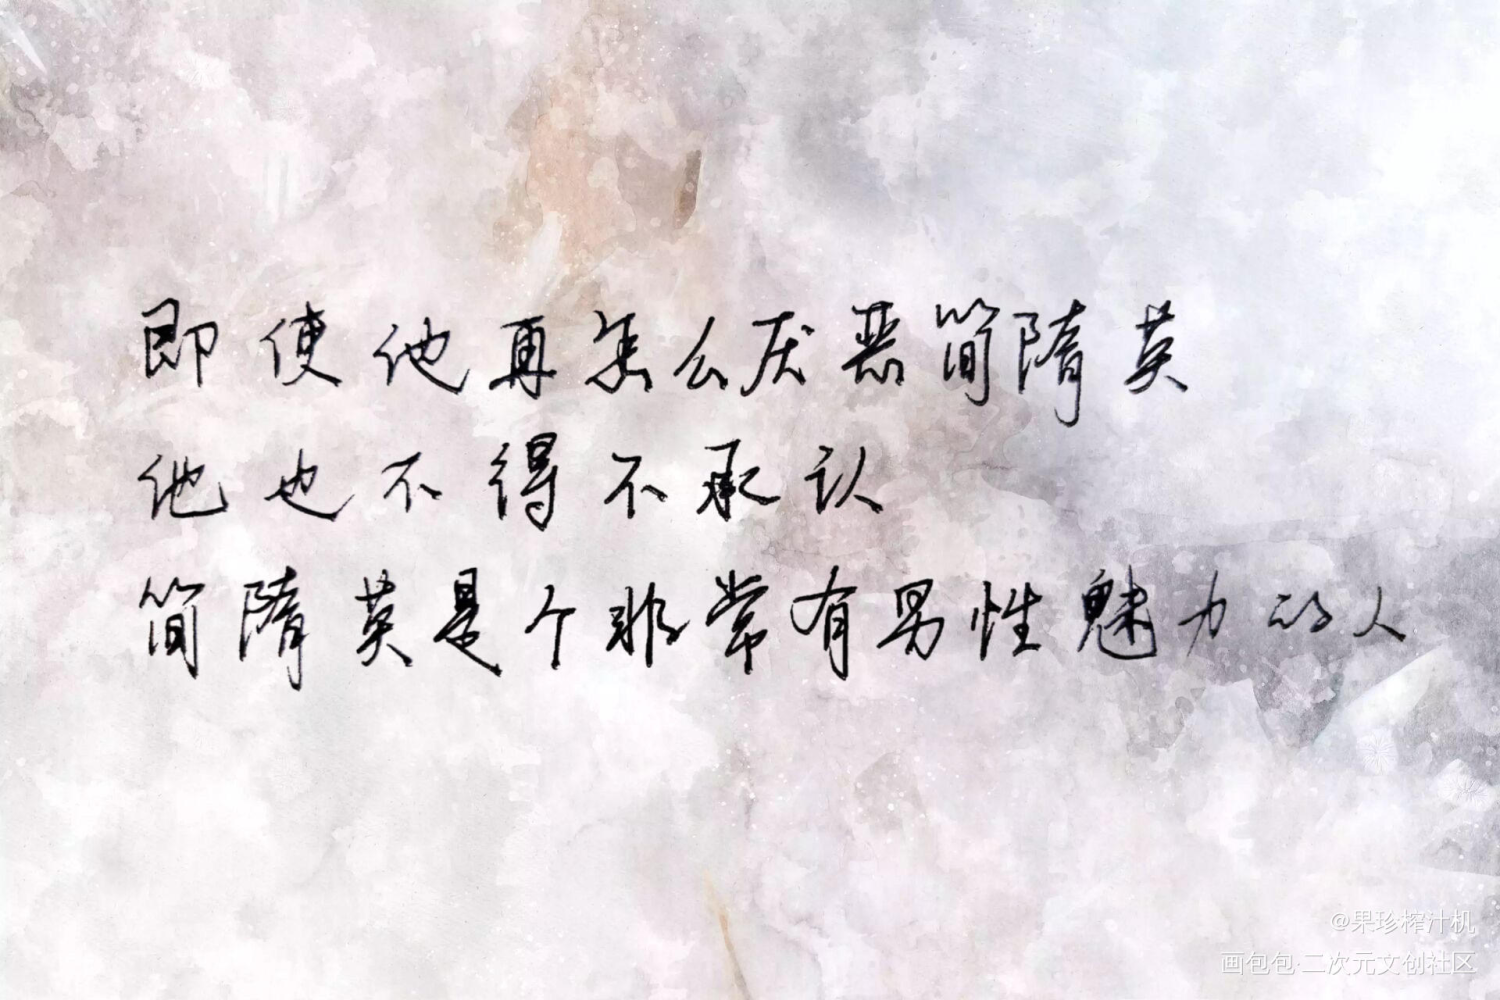 即使他再怎么厌恶简隋英
他也不得不承认
简隋英是个非常有男性魅力的人
@果珍榨汁机
画包包·二次元文创社区